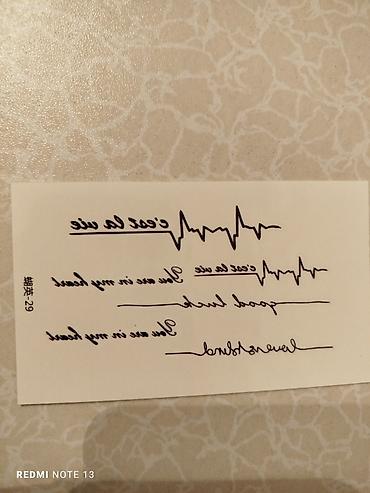 c'est la vie
c'est la vie
You are in my heart
good luck
You are in my heart
-29
REDMI NOTE 13